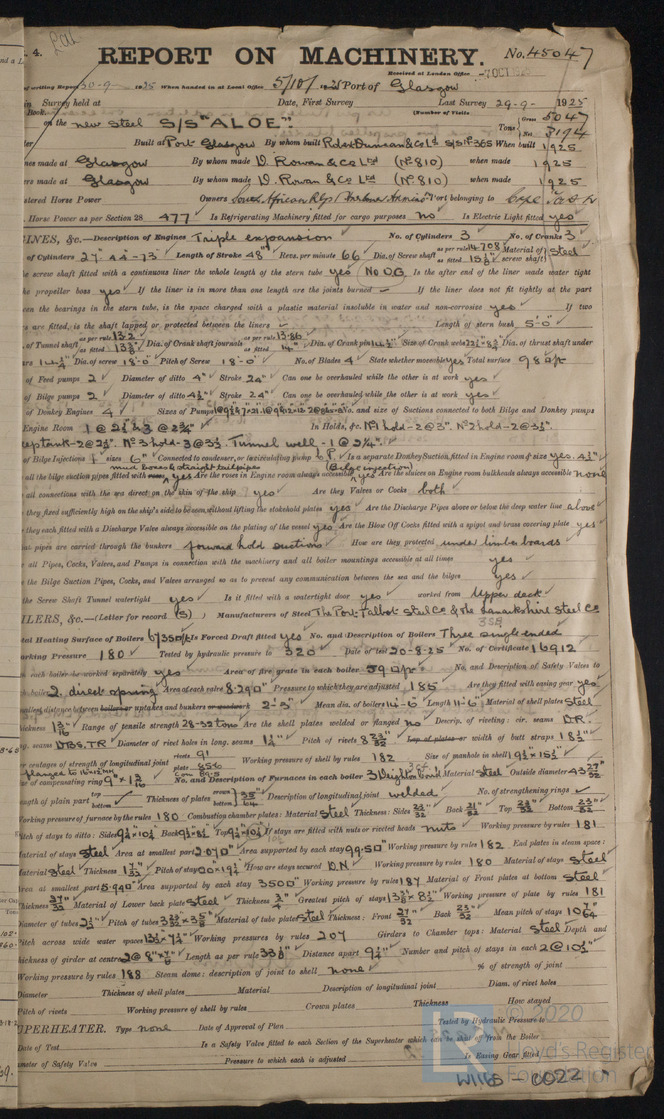 4.
REPORT ON MACHINERY. No. 45047
Received at London Office 7 OCT
of writing Report 30-9- 1925 When handed in at Local Office 5/10/ 1925 Port of Glasgow
in Survey held at Date, First Survey Last Survey 29-9- 1925
Book. (Number of Visits
on the new Steel S/S "ALOE" Tons Gross 5047 Net 3194
Built at Port Glasgow By whom built Robt Duncan & Co Ld S/S No 365 When built 1925
nes made at Glasgow By whom made D. Rowan & Co Ltd (No 810) when made 1925
ers made at Glasgow By whom made D. Rowan & Co Ltd (No 810) when made 1925
stered Horse Power Owners South African Rlys Port belonging to Cape
Horse Power as per Section 28 477 Is Refrigerating Machinery fitted for cargo purposes no Is Electric Light fitted yes
INES, &c.—Description of Engines Triple expansion No. of Cylinders 3 No. of Cranks 3
of Cylinders 27"-44"-73" Length of Stroke 48" Revs. per minute 66 Dia. of Screw shaft as per rule 14.708 as fitted Material of screw shaft Steel
he screw shaft fitted with a continuous liner the whole length of the stern tube yes (No OG) Is the after end of the liner made water tight
he propeller boss yes If the liner is in more than one length are the joints burned — If the liner does not fit tightly at the part
een the bearings in the stern tube, is the space charged with a plastic material insoluble in water and non-corrosive yes If two
rs are fitted, is the shaft lapped or protected between the liners Length of stern bush 5'-0"
of Tunnel shaft as per rule 13.2 as fitted Dia. of Crank shaft journals as per rule 13.86 as fitted 14" Dia. of Crank pin Size of Crank webs Dia. of thrust shaft under
Dia. of screw 18'-0" Pitch of Screw 18'-0" No. of Blades 4 State whether moveable yes Total surface 98 □ft
of Feed pumps 2 Diameter of ditto 4" Stroke 24" Can one be overhauled while the other is at work yes
of Bilge pumps 2 Diameter of ditto 4½" Stroke 24" Can one be overhauled while the other is at work yes
of Donkey Engines 4 Sizes of Pumps No. and size of Suctions connected to both Bilge and Donkey pumps
Engine Room 1 @ 2½" & 3 @ 2¾" In Holds, &c. No 1 hold - 2 @ 3" No 2 hold - 2 @ 3½"
eeptank - 2 @ 2½". No 3 hold - 3 @ 3½ Tunnel well - 1 @ 2¾".
of Bilge Injections 1 sizes 6" Connected to condenser, or to circulating pump C.P. Is a separate Donkey Suction fitted in Engine room & size yes. 4½"
mud boxes & straight tailpipes (Bilge injection)
all the bilge suction pipes fitted with yes Are the roses in Engine room always accessible yes Are the sluices on Engine room bulkheads always accessible none
all connections with the sea direct on the skin of the ship yes Are they Valves or Cocks both
they fixed sufficiently high on the ship's side to be seen without lifting the stokehold plates yes Are the Discharge Pipes above or below the deep water line above
they each fitted with a Discharge Valve always accessible on the plating of the vessel yes Are the Blow Off Cocks fitted with a spigot and brass covering plate yes
at pipes are carried through the bunkers forward hold suctions How are they protected under limber boards
all Pipes, Cocks, Valves, and Pumps in connection with the machinery and all boiler mountings accessible at all times yes
the Bilge Suction Pipes, Cocks, and Valves arranged so as to prevent any communication between the sea and the bilges yes
the Screw Shaft Tunnel watertight yes Is it fitted with a watertight door yes worked from Upper deck
ILERS, &c.—(Letter for record (S)) Manufacturers of Steel The Port Talbot Steel Co & The Lanarkshire Steel Co
tal Heating Surface of Boilers 6735 □ft Is Forced Draft fitted yes No. and Description of Boilers Three single ended
orking Pressure 180 Tested by hydraulic pressure to 320 Date of test 20-8-25 No. of Certificate 16912
n each boiler be worked separately yes Area of fire grate in each boiler 59 □ft No. and Description of Safety Valves to
h boiler 2. direct spring Area of each valve 8.29 □" Pressure to which they are adjusted 185 Are they fitted with easing gear yes
allest distance between boilers or uptakes and bunkers or woodwork 2'-3" Mean dia. of boilers 14'-6" Length 11'-6" Material of shell plates Steel
hickness Range of tensile strength 28-32 tons Are the shell plates welded or flanged no Descrip. of riveting: cir. seams D.R.
g. seams DBS.TR Diameter of rivet holes in long. seams 1¼" Pitch of rivets Lap of plates or width of butt straps
er centages of strength of longitudinal joint rivets 91 plate 85.6 Working pressure of shell by rules 182 Size of manhole in shell
e of compensating ring No. and Description of Furnaces in each boiler 3 Deighton Material Steel Outside diameter
ngth of plain part top bottom Thickness of plates crown bottom Description of longitudinal joint welded No. of strengthening rings
orking pressure of furnace by the rules 180 Combustion chamber plates: Material Steel Thickness: Sides Back Top Bottom
itch of stays to ditto: Sides Back Top If stays are fitted with nuts or riveted heads nuts Working pressure by rules 181
aterial of stays Steel Area at smallest part 2.07 □" Area supported by each stay 99.5 □" Working pressure by rules 182 End plates in steam space:
aterial Steel Thickness Pitch of stays How are stays secured D.N. Working pressure by rules 180 Material of stays Steel
rea at smallest part 5.94 □" Area supported by each stay 350 □" Working pressure by rules 187 Material of Front plates at bottom Steel
hickness Material of Lower back plate Steel Thickness Greatest pitch of stays Working pressure of plate by rules 181
iameter of tubes 2½" Pitch of tubes Material of tube plates Steel Thickness: Front Back Mean pitch of stays
itch across wide water spaces Working pressures by rules 207 Girders to Chamber tops: Material Steel Depth and
hickness of girder at centre Length as per rule Distance apart 9½" Number and pitch of stays in each 2 @ 10½"
Working pressure by rules 188 Steam dome: description of joint to shell none % of strength of joint
Diameter Thickness of shell plates Material Description of longitudinal joint Diam. of rivet holes
Pitch of rivets Working pressure of shell by rules Crown plates Thickness How stayed
UPERHEATER. Type none Date of Approval of Plan Tested by Hydraulic Pressure to
Date of Test Is a Safety Valve fitted to each Section of the Superheater which can be shut off from the Boiler
meter of Safety Valve Pressure to which each is adjusted Is Easing Gear fitted
© 2020
Lloyd's Register
Foundation
W1168-0022